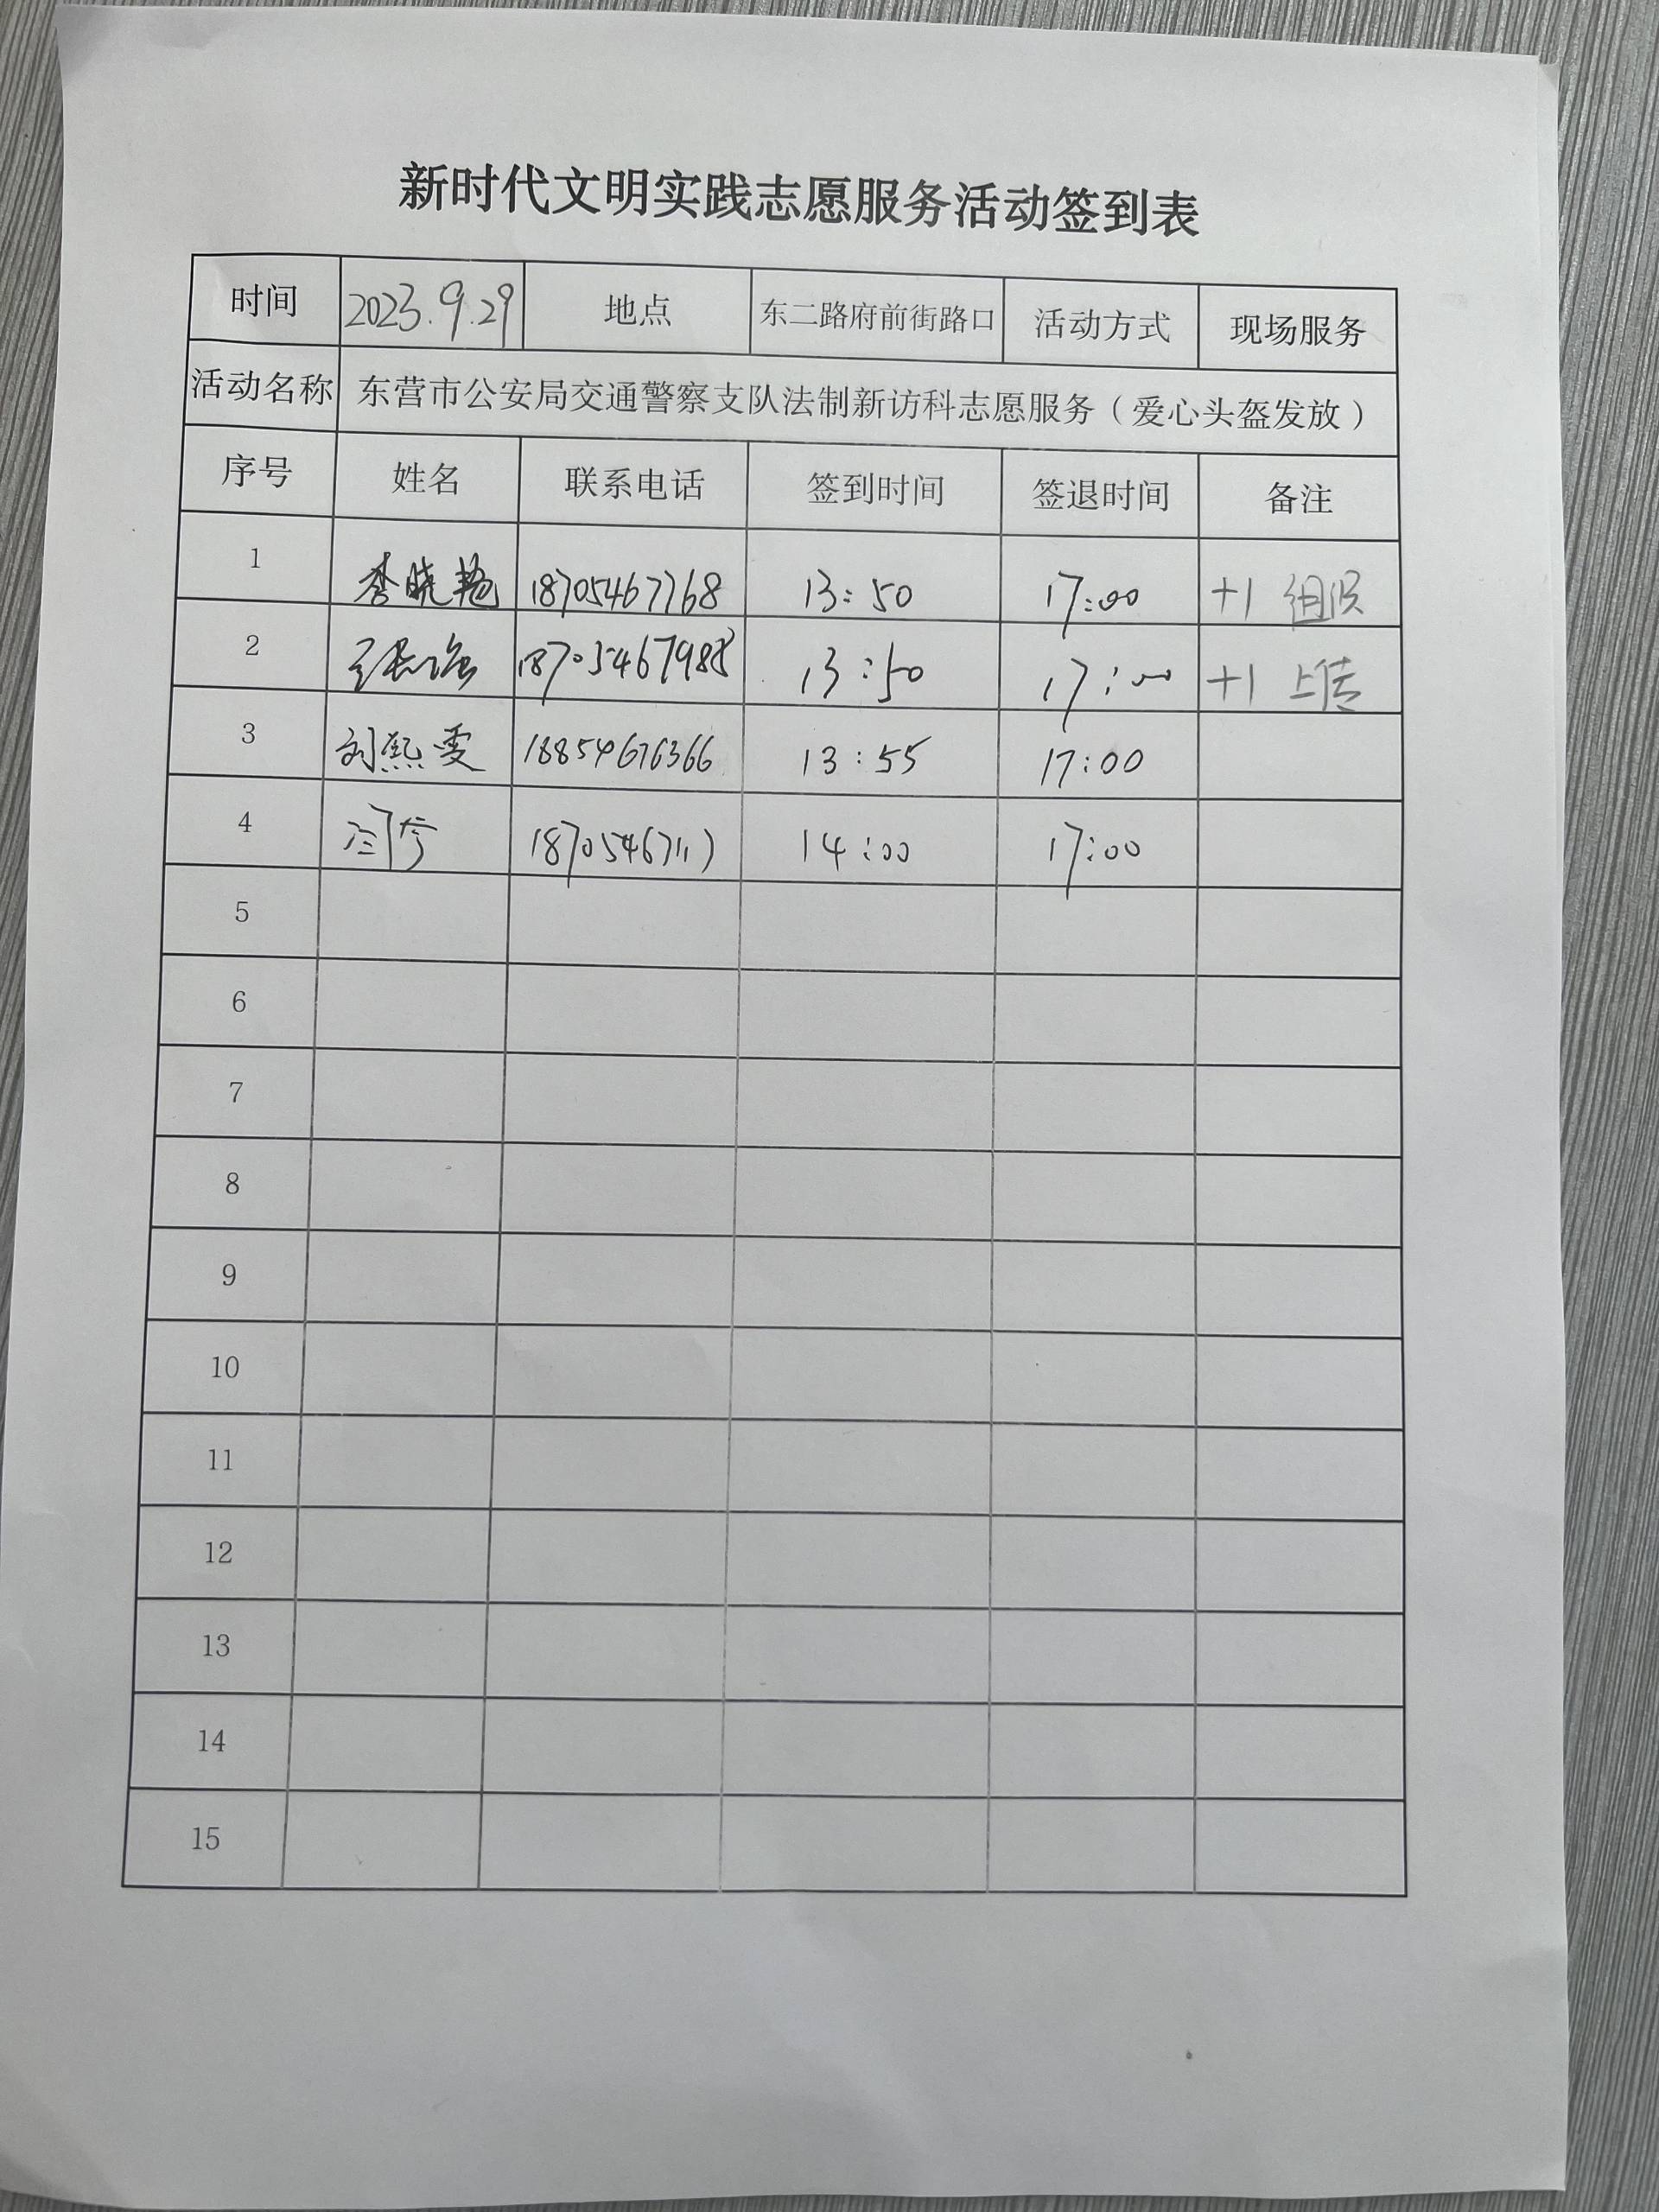 新时代文明实践志愿服务活动签到表
时间 2023.9.29 地点 东二路府前街路口 活动方式 现场服务
活动名称 东营市公安局交通警察支队法制新访科志愿服务（爱心头盔发放）
序号 姓名 联系电话 签到时间 签退时间 备注
1 李晓艳 18705467768 13:50 17:00 +1 组织
2 18705467988 13:50 17:00 +1 上传
3 刘熙雯 18854676366 13:55 17:00
4 14:00 17:00
5
6
7
8
9
10
11
12
13
14
15